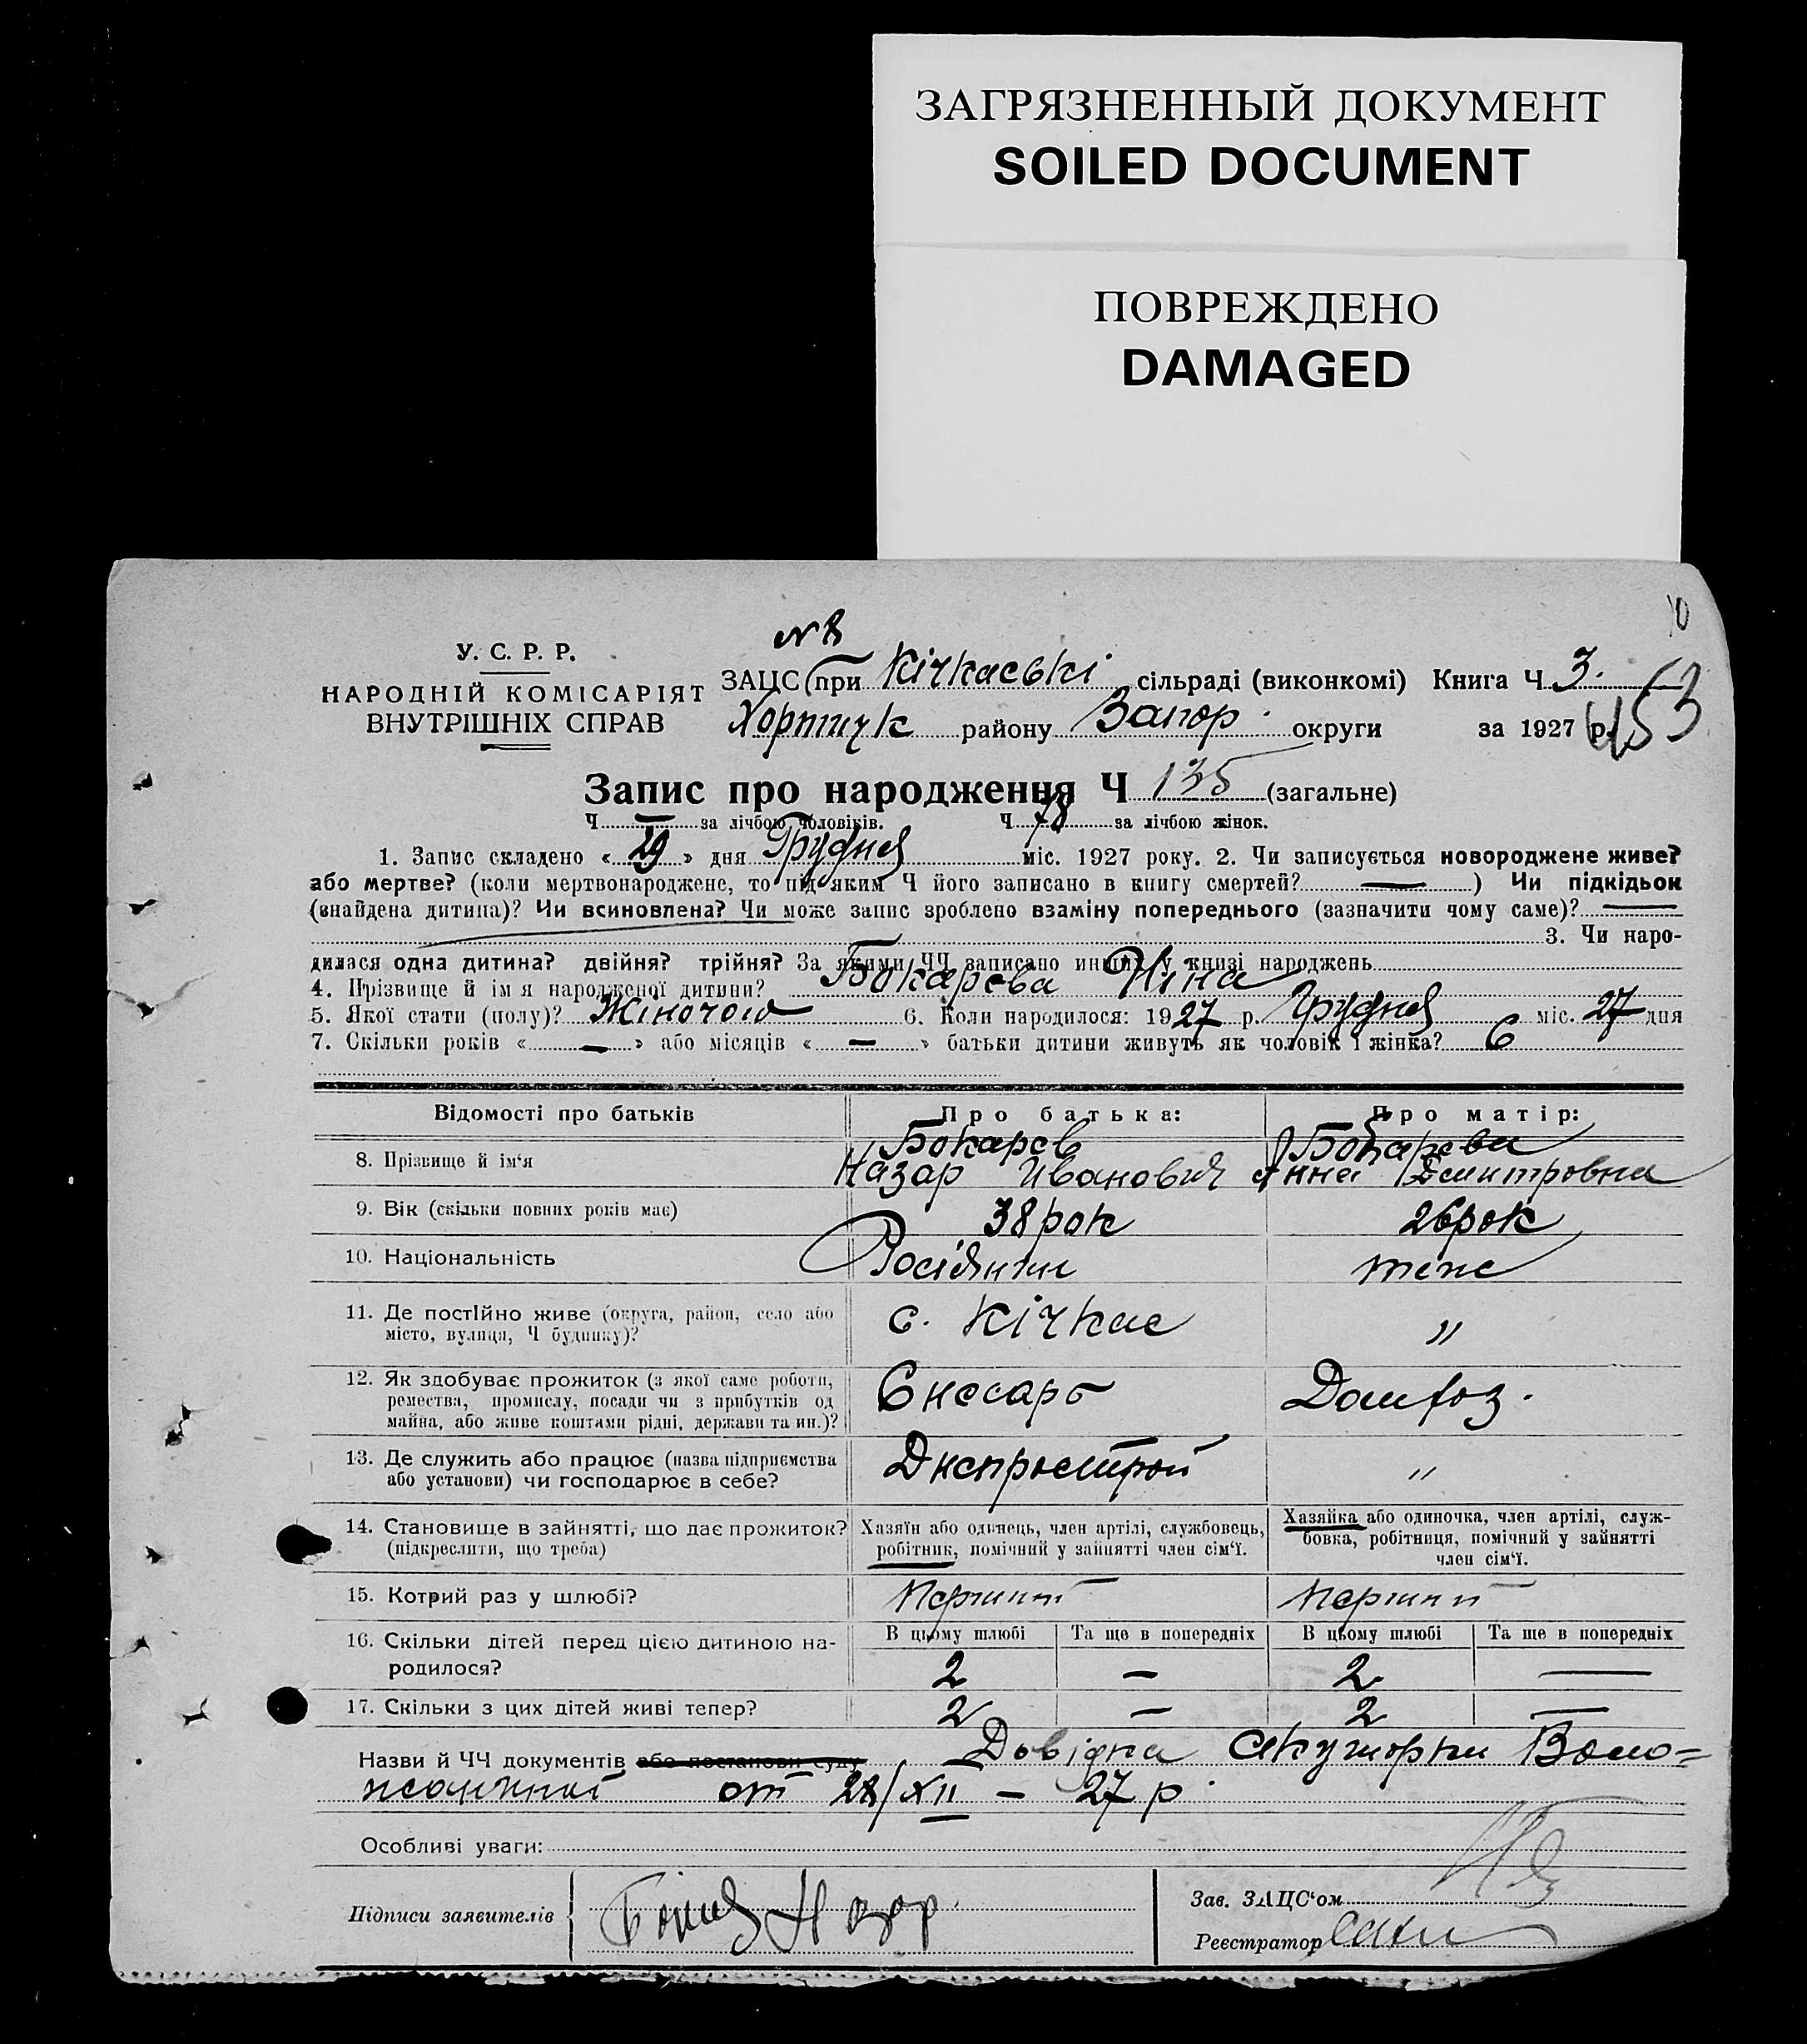 ЗАГРЯЗНЕННЫЙ ДОКУМЕНТ
SOILED DOCUMENT
ПОВРЕЖДЕНО
DAMAGED
У. С. Р. Р.
НАРОДНІЙ КОМІСАРІЯТ
ВНУТРІШНІХ СПРАВ
№ 8
ЗАЦС при Кічкаські сільраді (виконкомі) Книга Ч 3.
Хортицк району Запор. округи за 1927 р.
53
Запис про народження Ч 135 (загальне)
Ч — за лічбою чоловіків. Ч 78 за лічбою жінок.
1. Запис складено « 29 » дня Грудня міс. 1927 року. 2. Чи записується новороджене живе?
або мертве? (коли мертвонароджене, то під яким Ч його записано в книгу смертей? — ) Чи підкідьок
(знайдена дитина)? Чи всиновлена? Чи може запис зроблено взаміну попереднього (зазначити чому саме)? —
3. Чи наро-
дилася одна дитина? двійня? трійня? За якими ЧЧ записано инших у книзі народжень
4. Прізвище й ім я народженої дитини? Бокарева Нина
5. Якої стати (полу)? Жіночого 6. Коли народилося: 1927 р. Грудня міс. 27 дня
7. Скільки років « — » або місяців « — » батьки дитини живуть як чоловік і жінка? 6
Відомості про батьків Про батька: Про матір:
8. Прізвище й ім‘я Бокарев Назар Иванович Бокарева Анна Дмитровна
9. Вік (скільки повних років має) 38 рок 26 рок
10. Національність Росіянин теж
11. Де постійно живе (округа, район, село або
місто, вулиця, Ч будинку)? с. Кічкас "
12. Як здобуває прожиток (з якої саме роботи,
ремества, промислу, посади чи з прибутків од
майна, або живе коштами рідні, держави та ин.)? Слесарь Домгоз.
13. Де служить або працює (назва підприємства
або установи) чи господарює в себе? Днепрострой "
14. Становище в зайнятті, що дає прожиток?
(підкреслити, що треба)
Хазяїн або одинець, член артілі, службовець,
робітник, помічний у зайнятті член сім‘ї.
Хазяйка або одиночка, член артілі, служ-
бовка, робітниця, помічний у зайнятті
член сім‘ї.
15. Котрий раз у шлюбі? Перший Перший
16. Скільки дітей перед цією дитиною на-
родилося?
В цьому шлюбі Та ще в попередніх В цьому шлюбі Та ще в попередніх
2 — 2 —
17. Скільки з цих дітей живі тепер? 2 — 2 —
Назви й ЧЧ документів або постанови суду Довідка Акушорки
от 28/XII — 27 р.
Особливі уваги:
Підписи заявителів Назар
Зав. ЗАЦС‘ом
Реєстратор